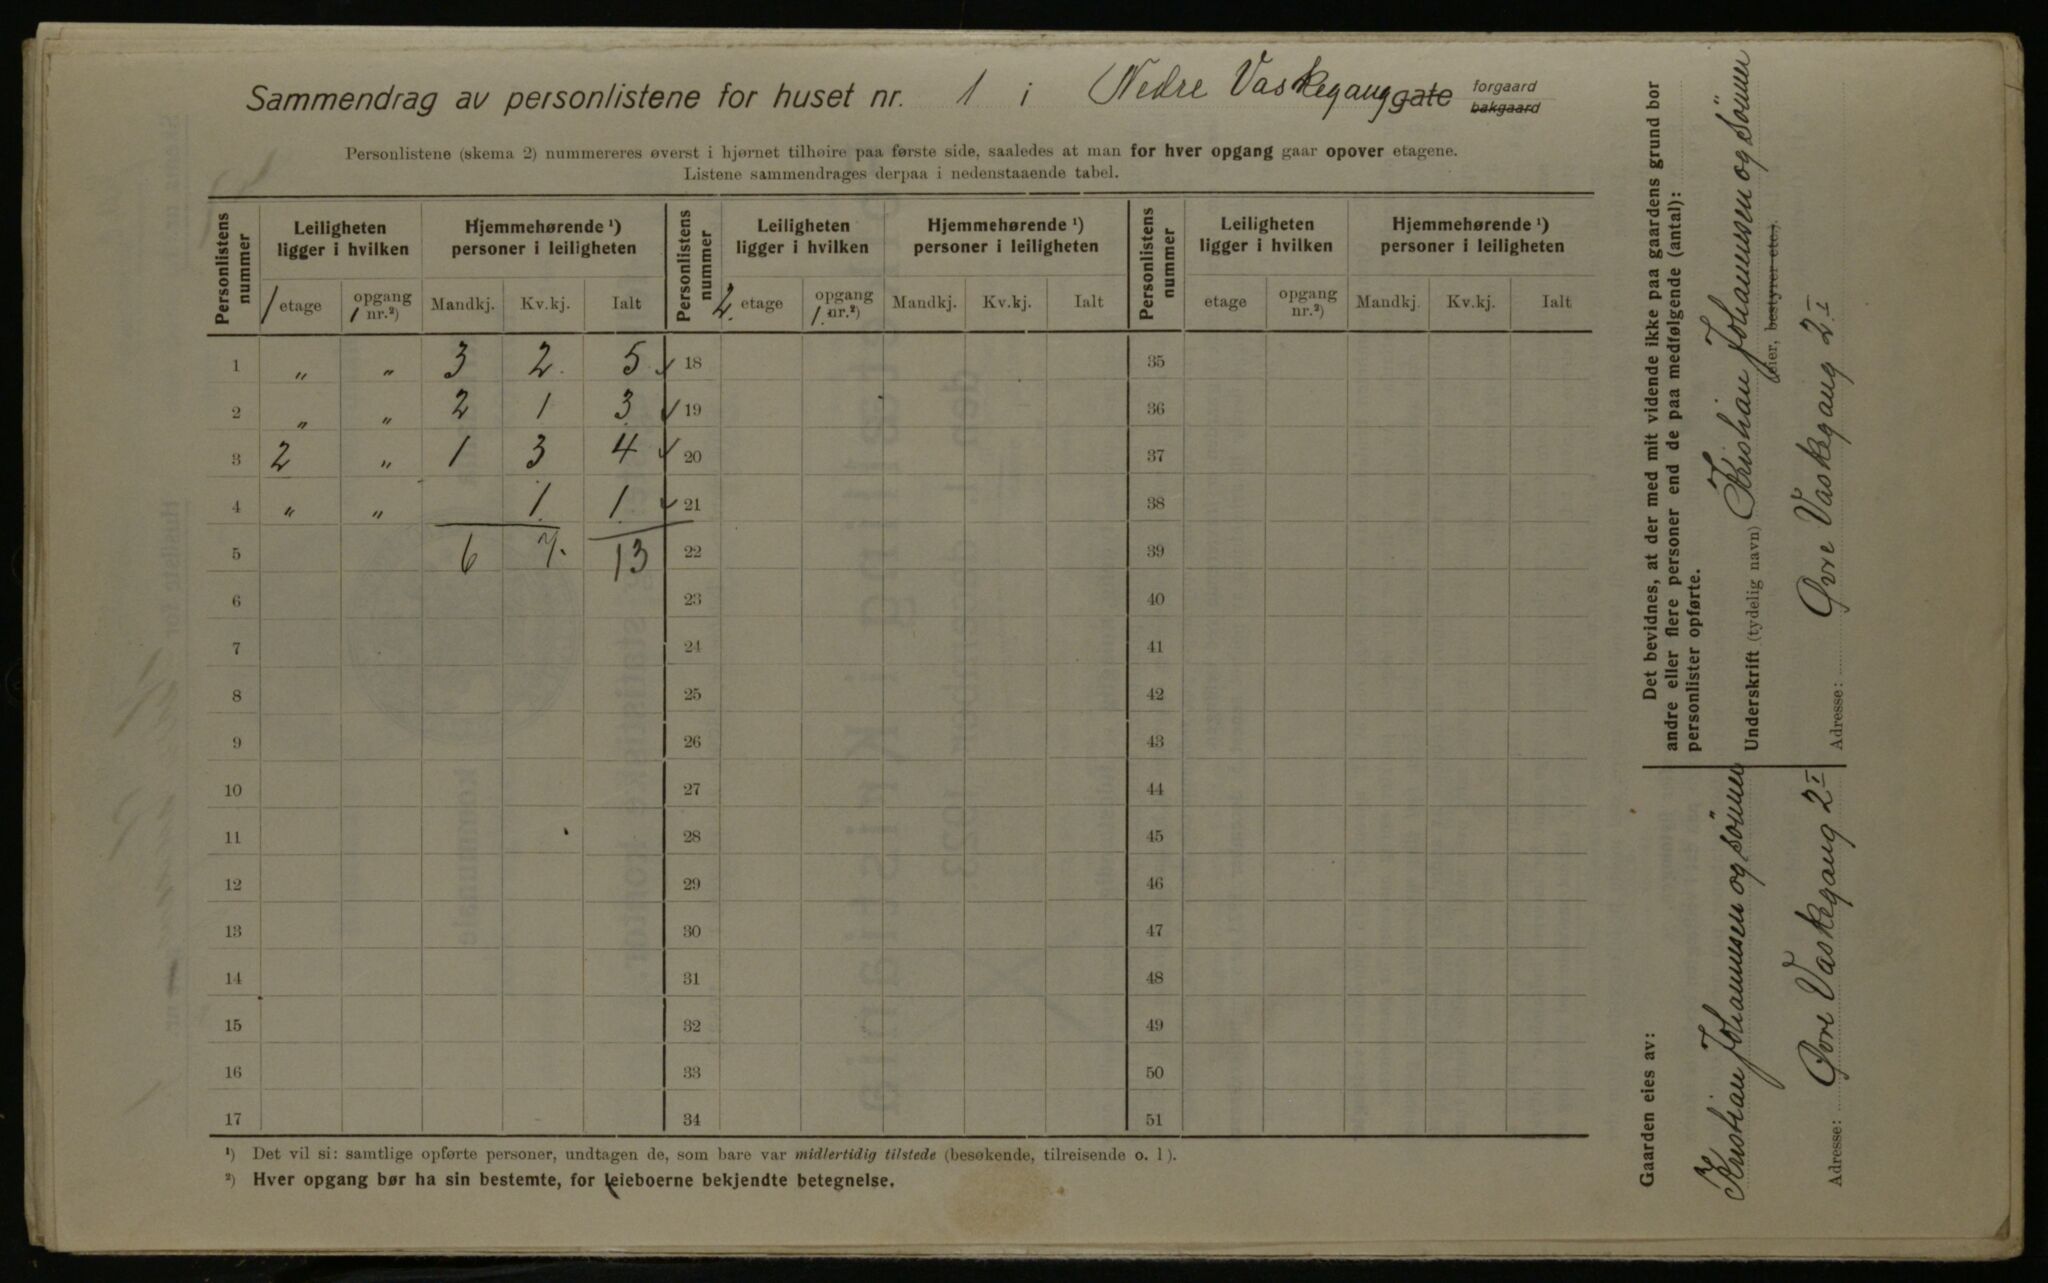 Sammendrag av personlistene for huset nr. 1 i Nedre Vaskegang gate forgaard bakgaard
Personlistene (skema 2) nummereres øverst i hjørnet tilhøire paa første side, saaledes at man for hver opgang gaar opover etagene.
Listene sammendrages derpaa i nedenstaaende tabel.
Personlistens nummer | Leiligheten ligger i hvilken | Hjemmehørende ¹) personer i leiligheten | Personlistens nummer | Leiligheten ligger i hvilken | Hjemmehørende ¹) personer i leiligheten | Personlistens nummer | Leiligheten ligger i hvilken | Hjemmehørende ¹) personer i leiligheten
1 etage | opgang 1 nr.²) | Mandkj. | Kv.kj. | Ialt | 2. etage | opgang 1. nr.²) | Mandkj. | Kv.kj. | Ialt | etage | opgang nr.²) | Mandkj. | Kv.kj. | Ialt
1 | „ | „ | 3 | 2. | 5 ✓ | 18 | 35
2 | „ | „ | 2 | 1 | 3 ✓ | 19 | 36
3 | 2 | „ | 1 | 3 | 4 ✓ | 20 | 37
4 | „ | „ | | 1. | 1. ✓ | 21 | 38
5 | | | 6 | 7. | 13 | 22 | 39
6 | 23 | 40
7 | 24 | 41
8 | 25 | 42
9 | 26 | 43
10 | 27 | 44
11 | 28 | 45
12 | 29 | 46
13 | 30 | 47
14 | 31 | 48
15 | 32 | 49
16 | 33 | 50
17 | 34 | 51
¹) Det vil si: samtlige opførte personer, undtagen de, som bare var midlertidig tilstede (besøkende, tilreisende o. l).
²) Hver opgang bør ha sin bestemte, for leieboerne bekjendte betegnelse.
Gaarden eies av:
Kristian Johannsen og sönner
Adresse: Øvre Vaskegang 2 I
Det bevidnes, at der med mit vidende ikke paa gaardens grund bor
andre eller flere personer end de paa medfølgende (antal):
personlister opførte.
Underskrift (tydelig navn) Kristian Johannsen og sönner
eier, bestyrer etc.).
Adresse: Øvre Vaskegang 2. I